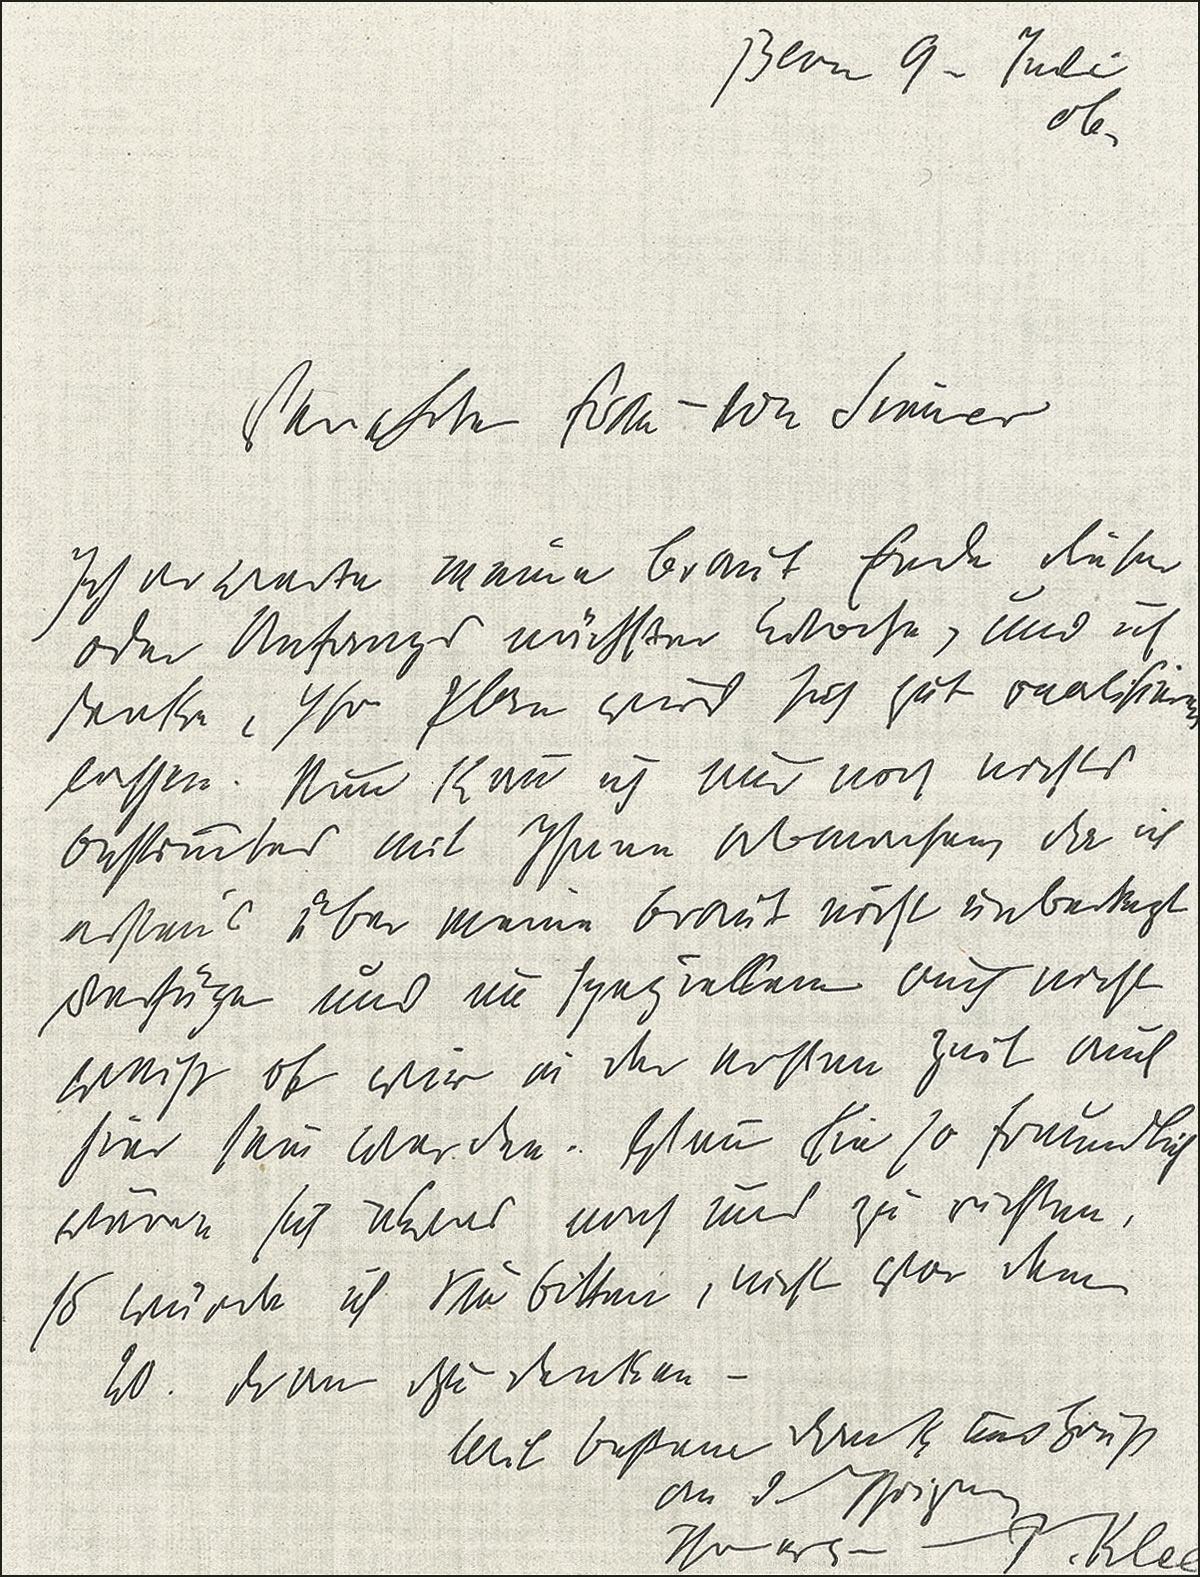 Bern 9. Juli
06.
Verehrter Herr von Sinner
Ich erwarte meine Braut Ende dieser
oder Anfangs nächster Woche, und ich
denke, Ihr Plan wird sich gut realisieren
lassen. Nun kann ich nur noch nichts
bestimmtes mit Ihnen abmachen, da ich
erstens über meine Braut nicht unbedingt
verfüge und im speziellen auch nicht
weiss ob wir in der ersten Zeit auch
hier sein werden. Wenn Sie so freundlich
wären sich etwas nach uns zu richten,
so würde ich Sie bitten, nicht vor dem
20. dran zu denken –
Mit bestem Dank und Gruss
an d. Ihrigen
Ihr erg. P. Klee